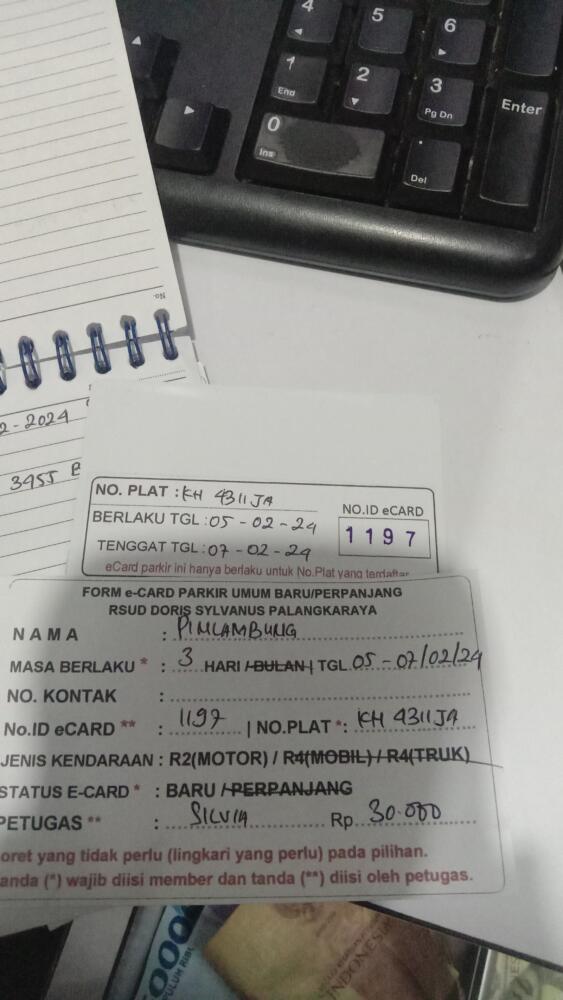 4
5
6
1
End
2
3
Pg Dn
Enter
0
Ins
.
Del
No.
2-2024
3955 B
NO. PLAT : KH 4311 JA
BERLAKU TGL : 05-02-24
TENGGAT TGL : 07-02-24
NO.ID eCARD
1197
eCard parkir ini hanya berlaku untuk No.Plat yang terdaftar
FORM e-CARD PARKIR UMUM BARU/PERPANJANG
RSUD DORIS SYLVANUS PALANGKARAYA
NAMA : PIMLAMBUNG
MASA BERLAKU * : 3 HARI / BULAN | TGL. 05-07/02/24
NO. KONTAK :
No.ID eCARD ** : 1197 | NO.PLAT *: KH 4311 JA
JENIS KENDARAAN : R2(MOTOR) / R4(MOBIL) / R4(TRUK)
STATUS E-CARD * : BARU / PERPANJANG
PETUGAS ** : SILVIA Rp 30.000
oret yang tidak perlu (lingkari yang perlu) pada pilihan.
anda (*) wajib diisi member dan tanda (**) diisi oleh petugas.
000
PULUH RIBU
INDONESIA